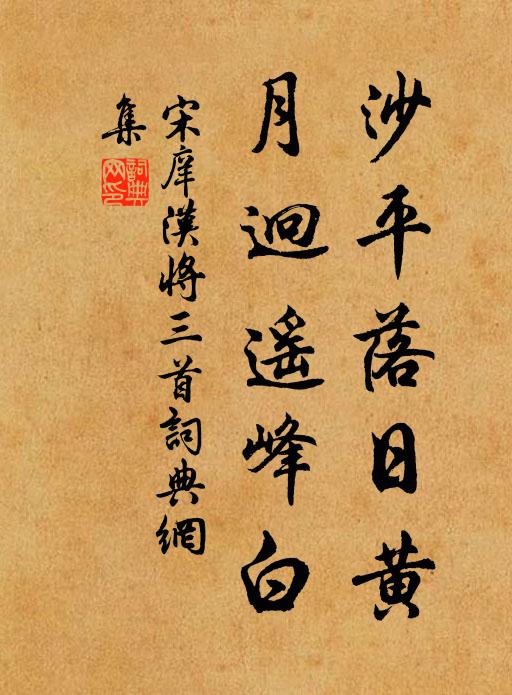 沙平落日黄
月迥遥峰白
宋庠漢將三首詞典網
集
詞典網印